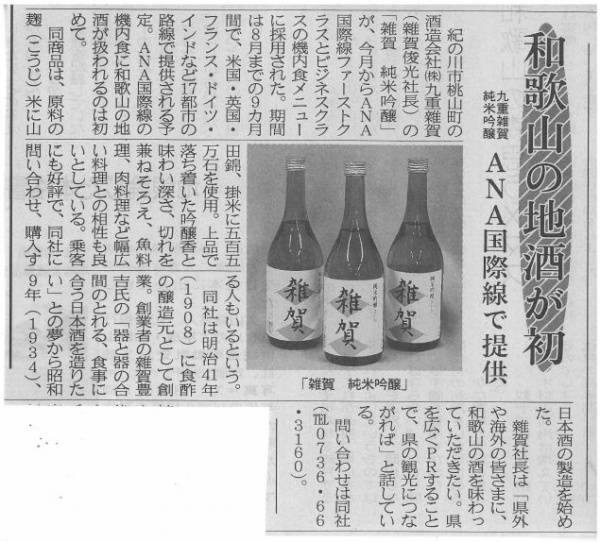 和歌山の地酒が初
九重雑賀
純米吟醸
ANA国際線で提供
紀の川市桃山町の
酒造会社㈱九重雑賀
(雑賀俊光社長)の
「雑賀 純米吟醸」
が、今月からANA
国際線ファーストク
ラスとビジネスクラ
スの機内食メニュー
に採用された。期間
は8月までの9カ月
間で、米国・英国・
フランス・ドイツ・
インドなど17都市の
路線で提供される予
定。ANA国際線の
機内食に和歌山の地
酒が扱われるのは初
めて。
同商品は、原料の
麹(こうじ)米に山
田錦、掛米に五百五
万石を使用。上品で
落ち着いた吟醸香と
味わい深さ、切れを
兼ねそろえ、魚料
理、肉料理など幅広
い料理との相性も良
いとしている。乗客
にも好評で、同社に
問い合わせ、購入す
る人もいるという。
同社は明治41年
(1908)に食酢
の醸造元として創
業。創業者の雑賀豊
吉氏の「器と器の合
間のとれる、食事に
合う日本酒を造りた
い」との夢から昭和
9年(1934)、
日本酒の製造を始め
た。
雑賀社長は「県外
や海外の皆さまに、
和歌山の酒を味わっ
ていただきたい。県
を広くPRすること
で、県の観光につな
がれば」と話してい
る。
問い合わせは同社
(℡0736・66
・3160)。
雑賀
純米吟醸
雑賀
雑賀
「雑賀 純米吟醸」